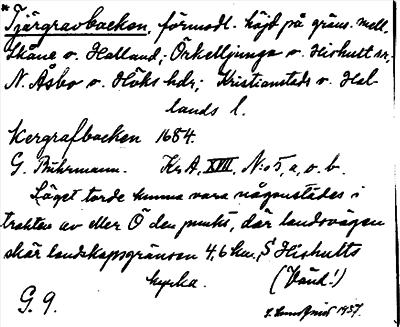 *Tjärgravbacken, förmodl. höjd på gräns. mell.
Skåne o. Halland; Örkelljunga o. Hishult sn.
N. Åsbo o. Höks hdr; Kristianstads o. Hal-
lands l.
Kergrafbacken 1684.
G. Buhrmann. KrA, XVIII, N:o 5, a, o. b.
Läget torde kunna vara någonstädes i
trakten av eller Ö den punkt, där landsvägen
skär landskapsgränsen 4,6 km, S Hishults
kyrka. (Vänd!)
G. 9. 1937.